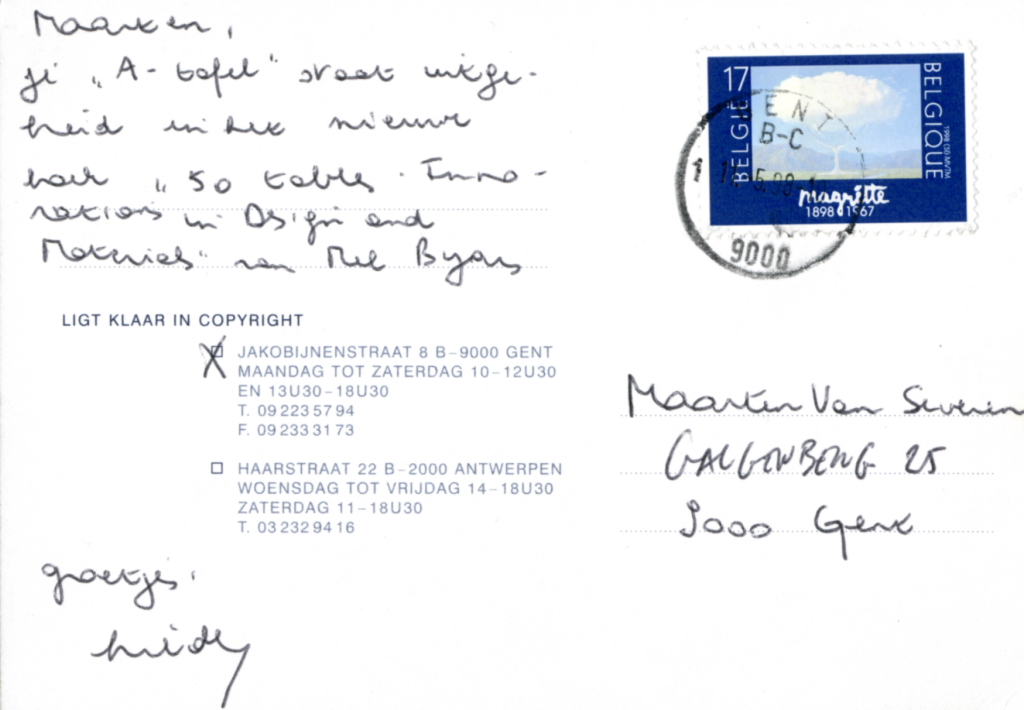 Maarten,
je "A-tafel" staat uitge-
breid in het nieuwe
boek "50 tables. Inno-
vations in Design and
Materials" van Mel Byars
LIGT KLAAR IN COPYRIGHT
X JAKOBIJNENSTRAAT 8 B–9000 GENT
MAANDAG TOT ZATERDAG 10–12U30
EN 13U30–18U30
T. 09 223 57 94
F. 09 233 31 73
HAARSTRAAT 22 B–2000 ANTWERPEN
WOENSDAG TOT VRIJDAG 14–18U30
ZATERDAG 11–18U30
T. 03 232 94 16
groetjes.
17
BELGIË
BELGIQUE
magritte
1898 1967
GENT
B-C
9000
Maarten Van Severen
GALGENBERG 25
9000 Gent